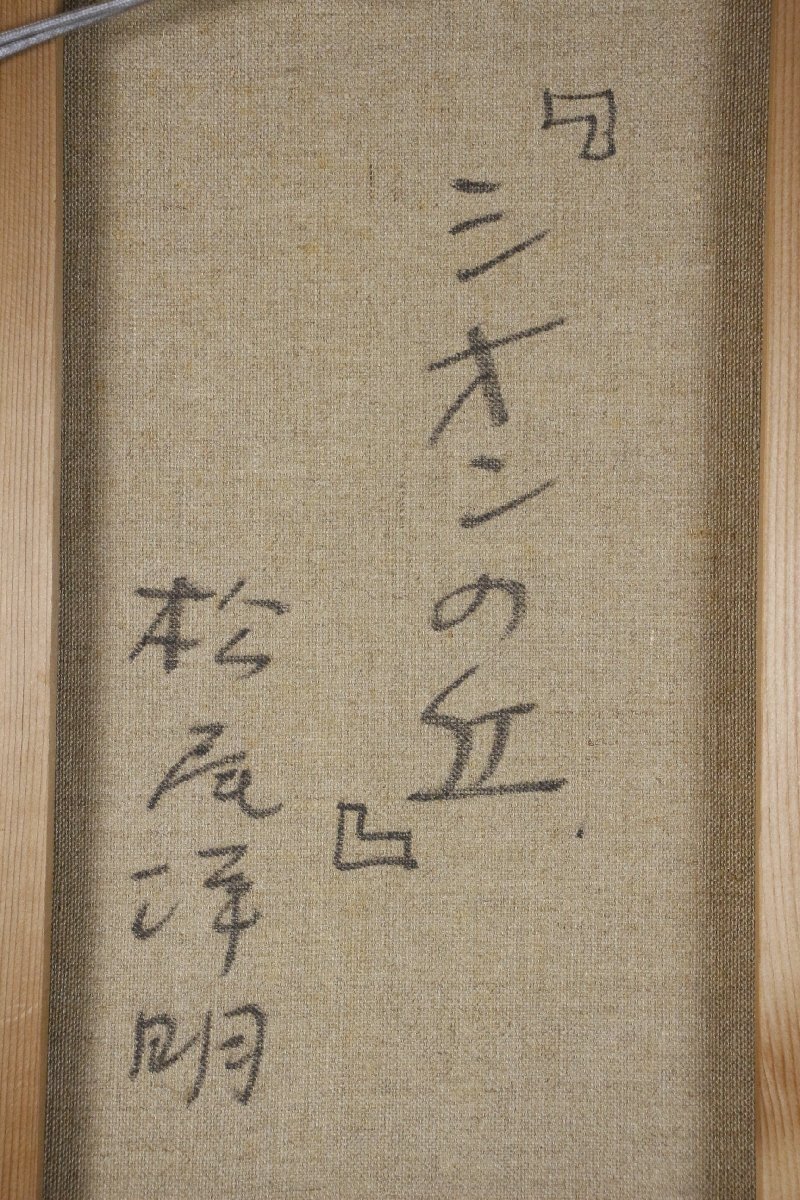 『シオンの丘』
松尾洋明